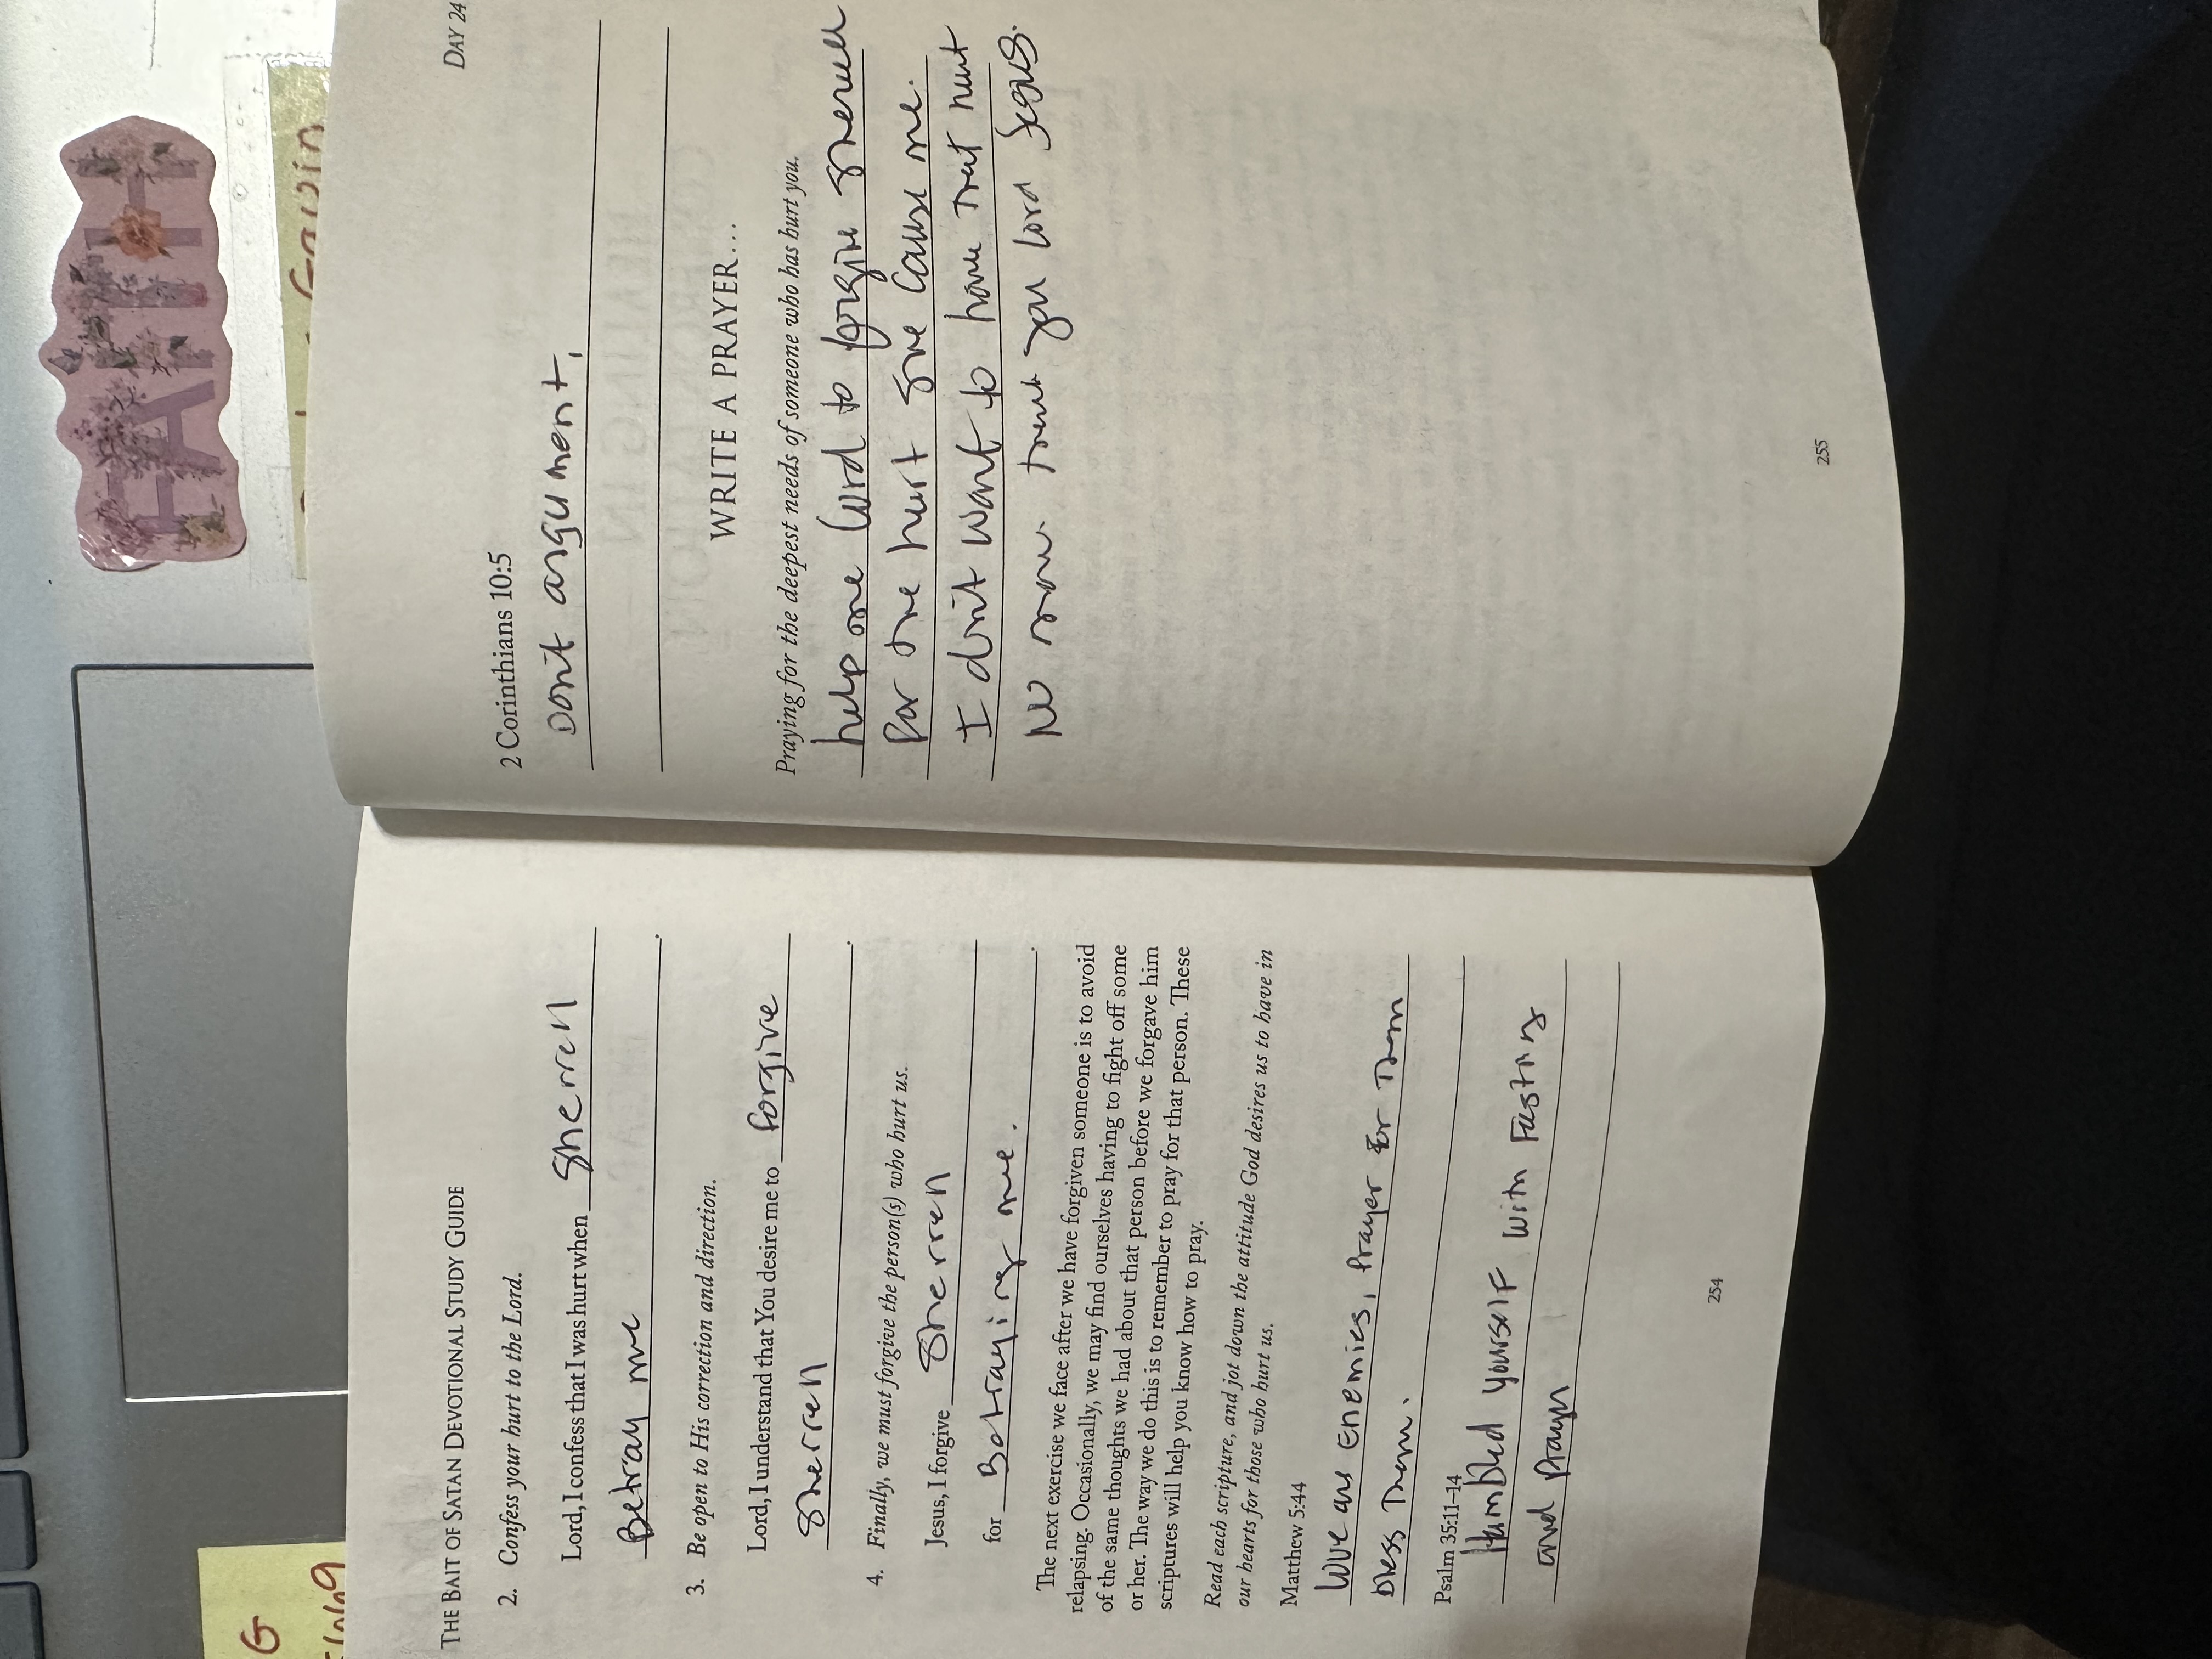 THE BAIT OF SATAN DEVOTIONAL STUDY GUIDE
2. Confess your hurt to the Lord.
Lord, I confess that I was hurt when Sherrell
Betray me.
3. Be open to His correction and direction.
Lord, I understand that You desire me to forgive
Sherrell.
4. Finally, we must forgive the person(s) who hurt us.
Jesus, I forgive Sherrell
for Betraying me.
The next exercise we face after we have forgiven someone is to avoid
relapsing. Occasionally, we may find ourselves having to fight off some
of the same thoughts we had about that person before we forgave him
or her. The way we do this is to remember to pray for that person. These
scriptures will help you know how to pray.
Read each scripture, and jot down the attitude God desires us to have in
our hearts for those who hurt us.
Matthew 5:44
Love are Enemies, Prayer for Them
Bless Them.
Psalm 35:11–14
Humbled yourself with Fasting
and Prayer
254
DAY 24
2 Corinthians 10:5
Don't argument.
WRITE A PRAYER…
Praying for the deepest needs of someone who has hurt you.
help me Lord to forgive Sherrell
for the hurt she cause me.
I don't want to have that hurt
No more. thank you Lord Jesus.
255
FAITH
Gavin
G